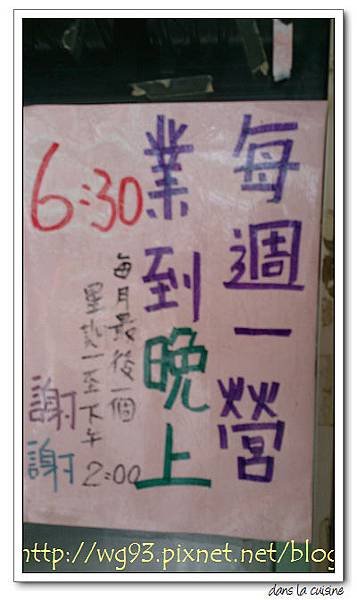 每週一營
業到晚上
6:30
每月最後一個
星期一至下午
2:00
謝
謝
http://wg93.pixnet.net/blog
dans la cuisine